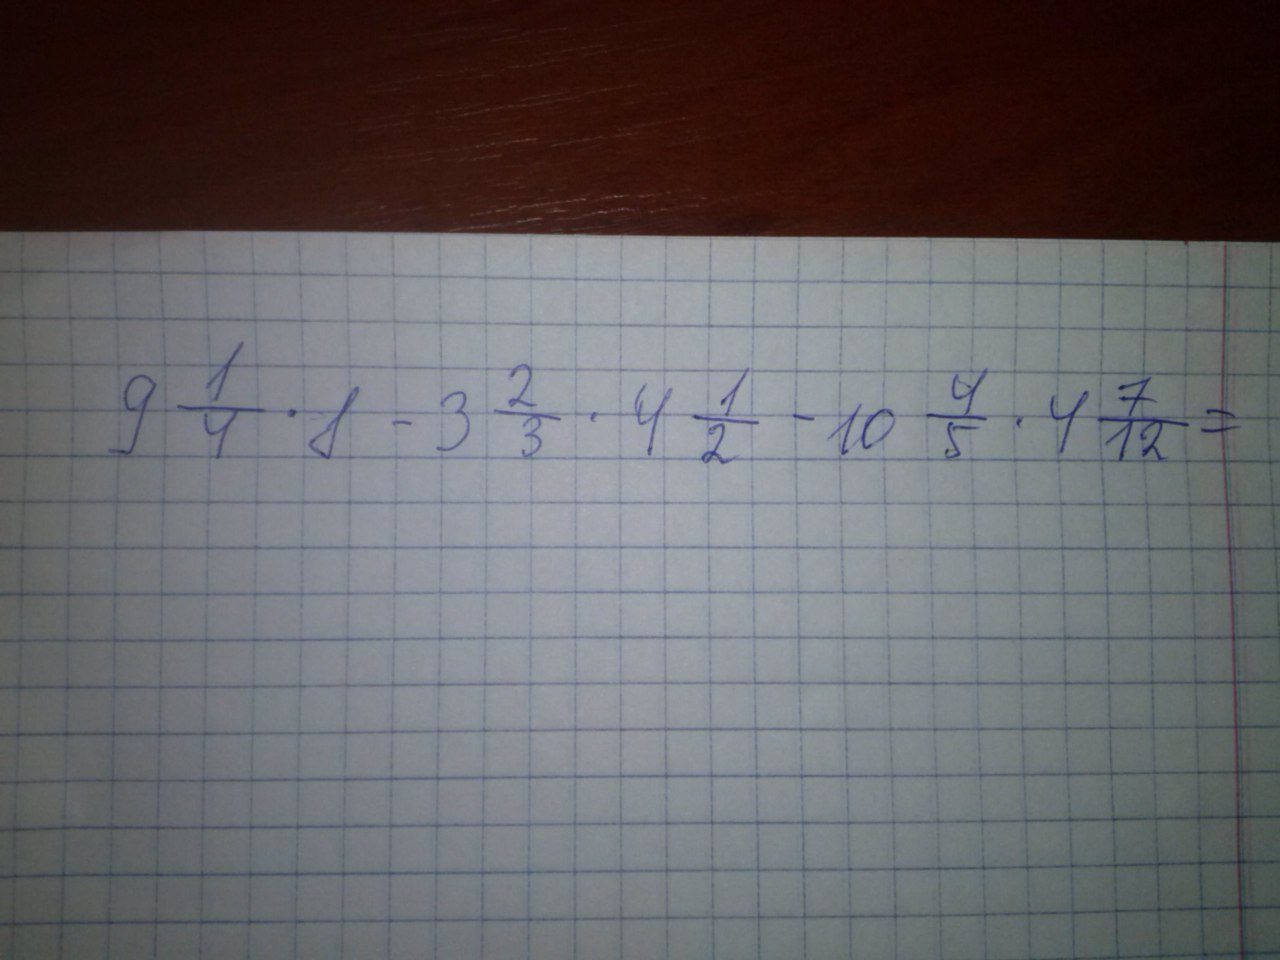 9 1/4 · 8 - 3 2/3 · 4 1/2 - 10 4/5 · 4 7/12 =